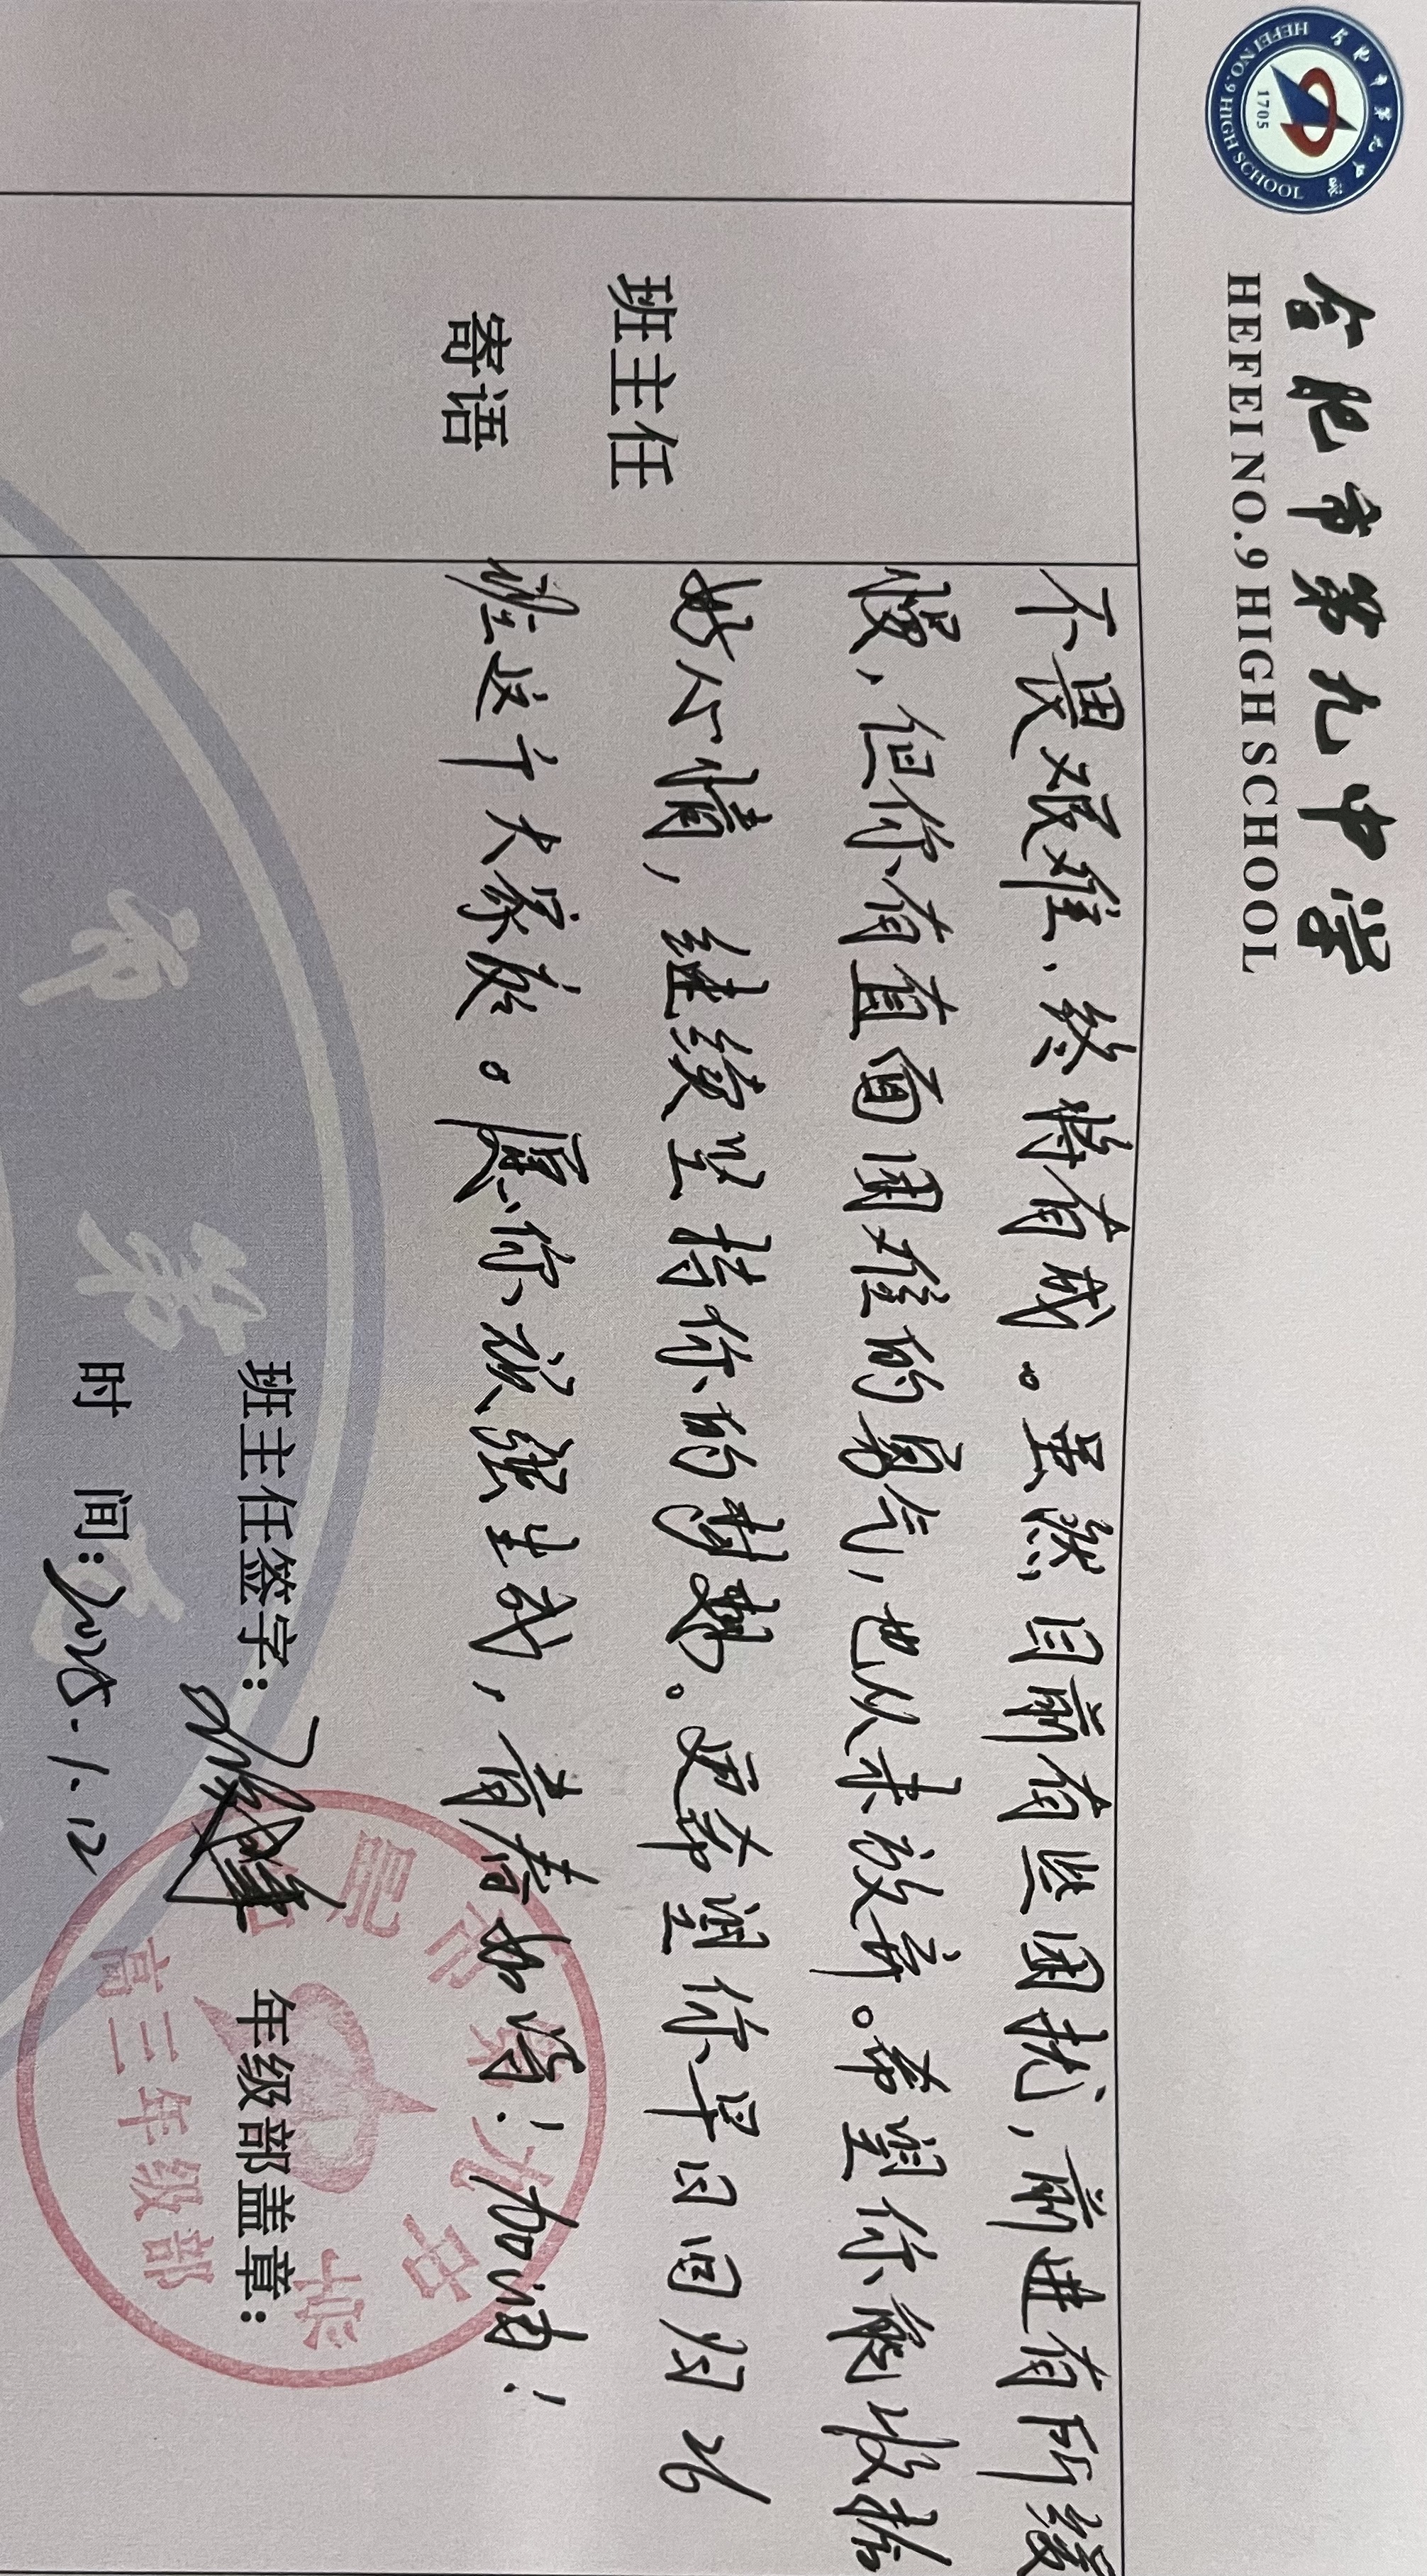 合肥市第九中学
HEFEI NO.9 HIGH SCHOOL
合肥市第九中学
HEFEI NO.9 HIGH SCHOOL
1705
班主任
寄语
不畏艰难、终将有成。虽然目前有些困扰,前进有所缓
慢,但你有直面困难的勇气,也从未放弃。希望你能收拾
好心情,继续坚持你的梦想。更希望你早日回归26
班这个大家庭。愿你顽强生长,青春如诗!加油!
班主任签字:
年级部盖章:
时 间:2025.1.12
市第九中学
高三年级部
市 第 九